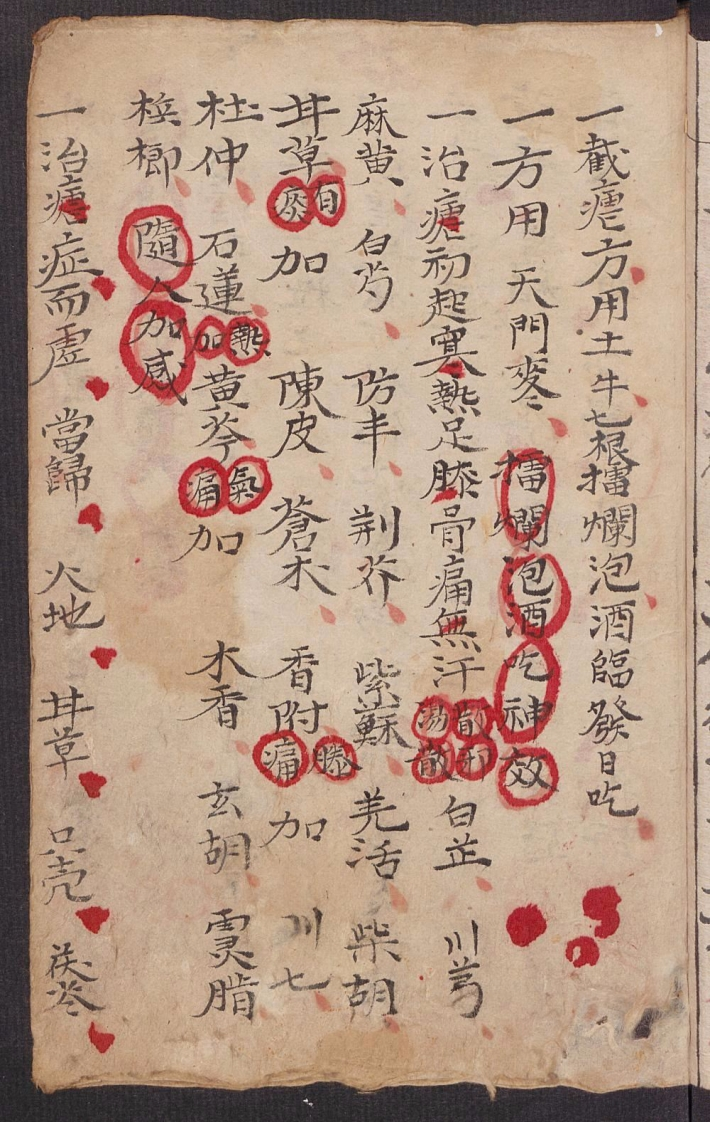 一截瘧方用土牛七根擂爛泡酒臨發日吃
一方用 天門麥 擂爛泡酒吃神效
一治瘧初起寞熱足膝骨痛無汗 散卯 散 白芷 川芎
麻黄 白芍 防丰 荆芥 紫蘇 羌活 柴胡
甘草 有 加 陳皮 蒼木 香附 膝痛 加 川七
杜仲 石蓮 熱加 黄芩 氣痛 加 木香 玄胡 靈腊
梹榔 隨人加咸
一治瘧症而虚 當歸 火地 甘草 只壳 茯苓